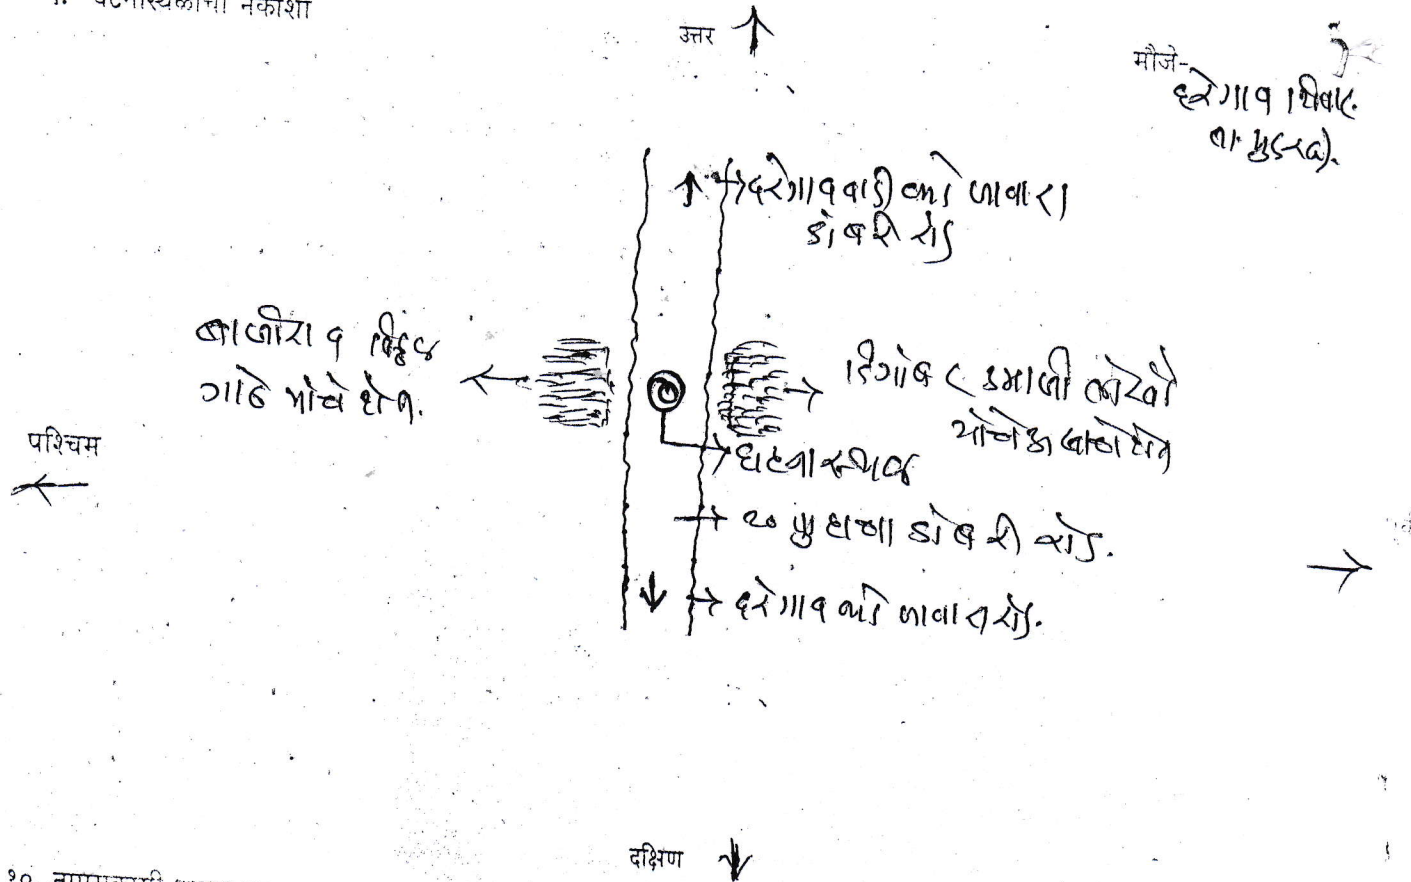 घटनास्थळाचा नकाशा
उत्तर
मौजे-
दरेगाव शिवार
ता. मुदखेड.
दरेगाववाडी कडे जाणारा
डांबरी रोड
बाजीराव विठ्ठल
गाढे यांचे शेत.
दिगांबर उमाजी
यांचे शेत
पश्चिम
घटनास्थळ
२० फुटाचा डांबरी रोड.
दरेगाव कडे जाणारा रोड.
दक्षिण
१०